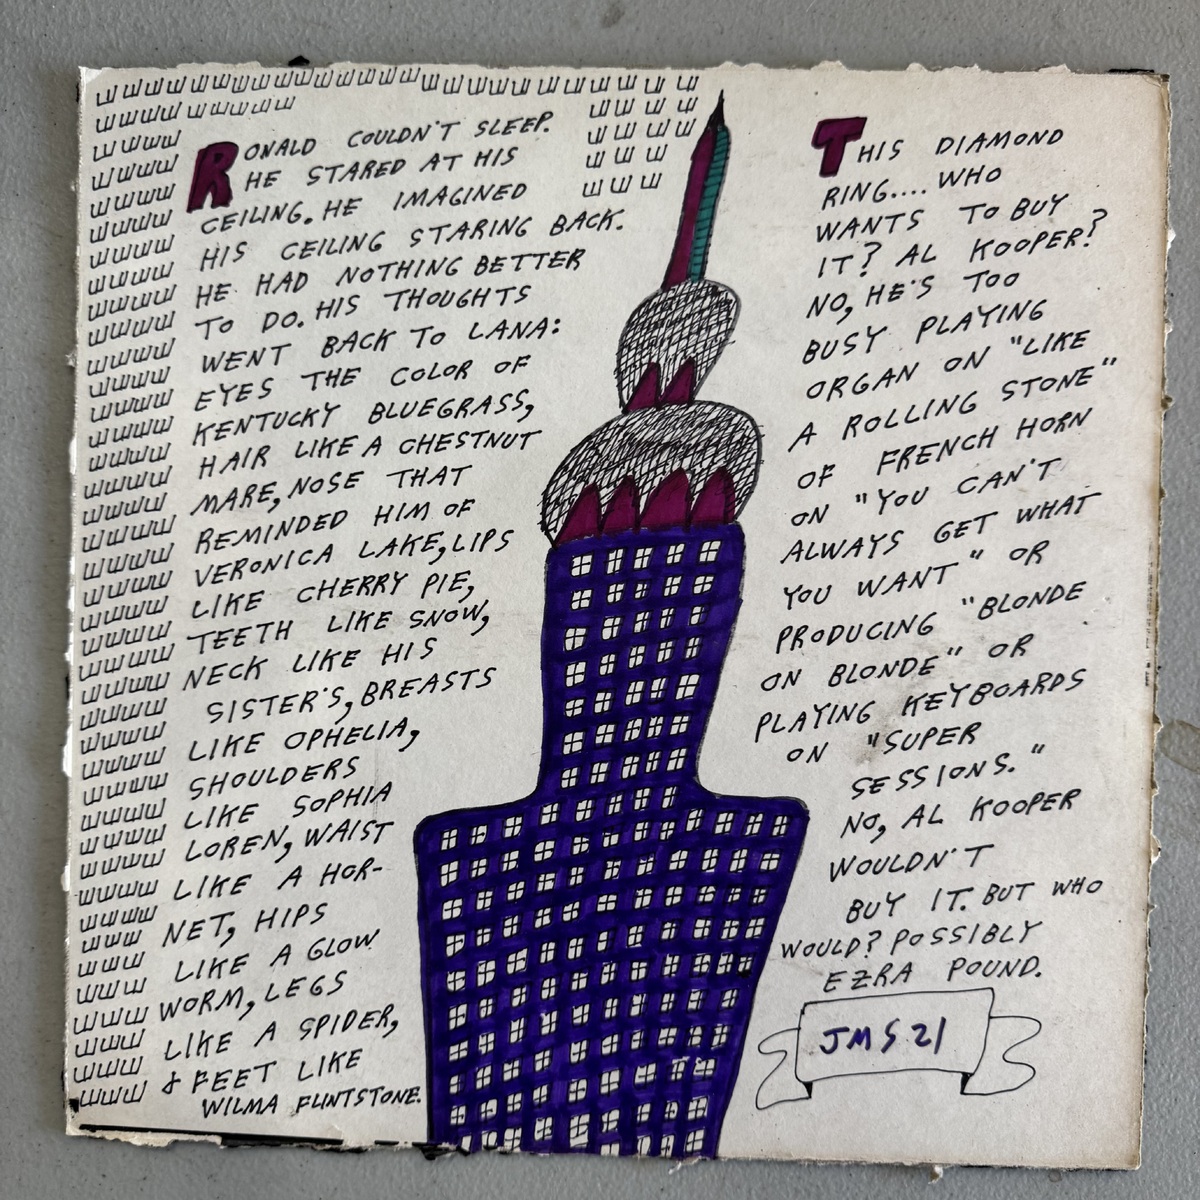 RONALD COULDN'T SLEEP.
HE STARED AT HIS
CEILING. HE IMAGINED
HIS CEILING STARING BACK.
HE HAD NOTHING BETTER
TO DO. HIS THOUGHTS
WENT BACK TO LANA:
EYES THE COLOR OF
KENTUCKY BLUEGRASS,
HAIR LIKE A CHESTNUT
MARE, NOSE THAT
REMINDED HIM OF
VERONICA LAKE, LIPS
LIKE CHERRY PIE,
TEETH LIKE SNOW,
NECK LIKE HIS
SISTER'S, BREASTS
LIKE OPHELIA,
SHOULDERS
LIKE SOPHIA
LOREN, WAIST
LIKE A HOR-
NET, HIPS
LIKE A GLOW
WORM, LEGS
LIKE A SPIDER,
& FEET LIKE
WILMA FLINTSTONE.
THIS DIAMOND
RING.... WHO
WANTS TO BUY
IT? AL KOOPER?
NO, HE'S TOO
BUSY PLAYING
ORGAN ON "LIKE
A ROLLING STONE"
OF FRENCH HORN
ON "YOU CAN'T
ALWAYS GET WHAT
YOU WANT" OR
PRODUCING "BLONDE
ON BLONDE" OR
PLAYING KEYBOARDS
ON "SUPER
SESSIONS."
NO, AL KOOPER
WOULDN'T
BUY IT. BUT WHO
WOULD? POSSIBLY
EZRA POUND.
JMS 21